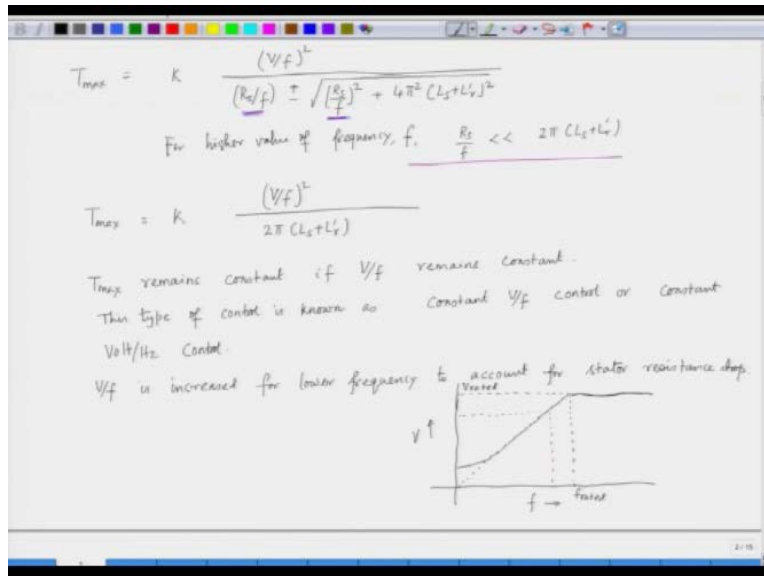 T_max = K (V/f)² / ((Rs/f) ± √((Rs/f)² + 4π² (Ls+L'r)²))
For higher value of frequency, f, Rs/f << 2π (Ls+L'r)
T_max = K. (V/f)² / (2π (Ls+L'r))
T_max remains constant if V/f remains constant.
This type of control is known as Constant V/f control or constant
Volt/Hz Control.
V/f is increased for lower frequency to account for stator resistance drop.
Vrated
V ↑
f → frated
2/15